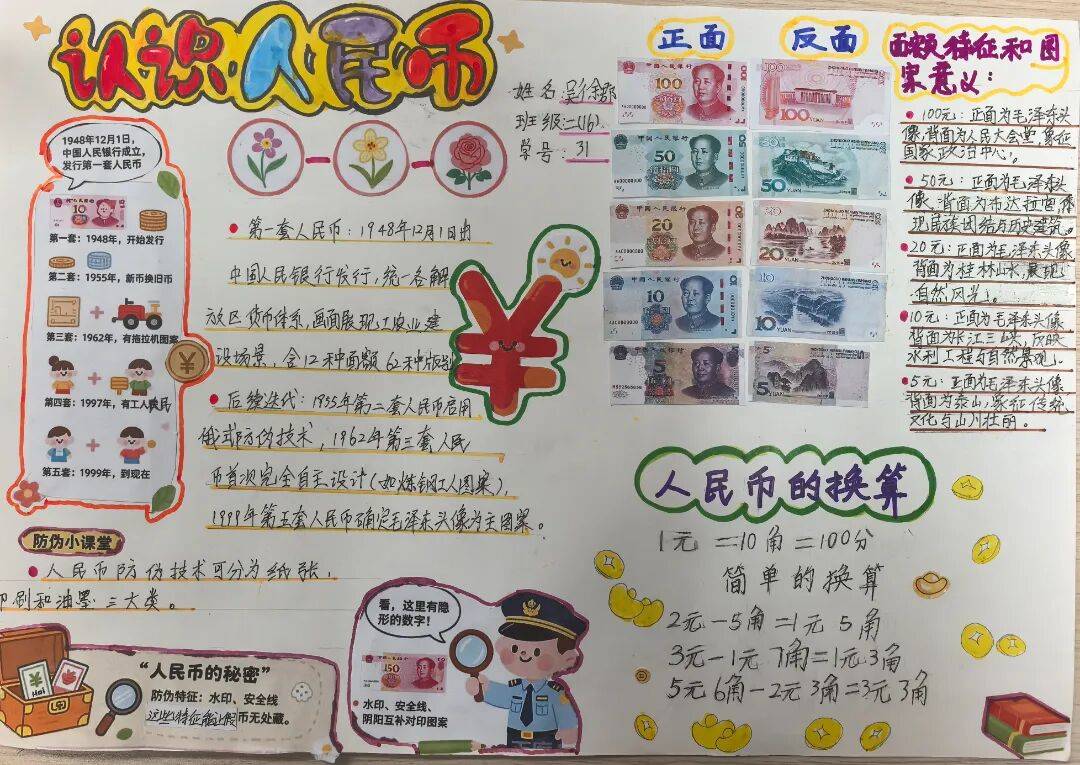 认识人民币
姓名:吴徐
班级:二(16).
学号:31
1948年12月1日,
中国人民银行成立,
发行第一套人民币
第一套:1948年,开始发行
第二套:1955年,新币换旧币
第三套:1962年,有拖拉机图案
第四套:1997年,有工人农民
第五套:1999年,到现在
第一套人民币:1948年12月1日由
中国人民银行发行,统一各解
放区货币体系,画面展现工农业建
设场景,含12种面额62种版别
后续迭代:1955年第二套人民币启用
俄式防伪技术,1962年第三套人民
币首次完全自主设计(如炼钢工人图案),
1999年第五套人民币确定毛泽东头像为主图案。
防伪小课堂
人民币防伪技术可分为纸张,
印刷和油墨三大类。
"人民币的秘密"
防伪特征:水印、安全线
这些特征能让假币无处藏。
看,这里有隐
形的数字!
水印、安全线、
阴阳互补对印图案
正面
反面
100
100
50
50
YUAN
20
20
YUAN
10
10
YUAN
5
5
YUAN
面额特征和图
案意义:
100元:正面为毛泽东头
像,背面为人民大会堂,象征
国家政治中心。
50元:正面为毛泽东头
像,背面为布达拉宫体
现民族团结与历史建筑。
20元:正面为毛泽东头像
背面为桂林山水,展现
自然风光」。
10元:正面为毛泽东头像
背面为长江三峡,反映
水利工程与自然景观」。
5元:正面为毛泽东头像
背面为泰山,象征传统
文化与山川壮丽。
人民币的换算
1元=10角=100分
简单的换算
2元-5角=1元5角
3元-1元7角=1元3角
5元6角-2元3角=3元3角